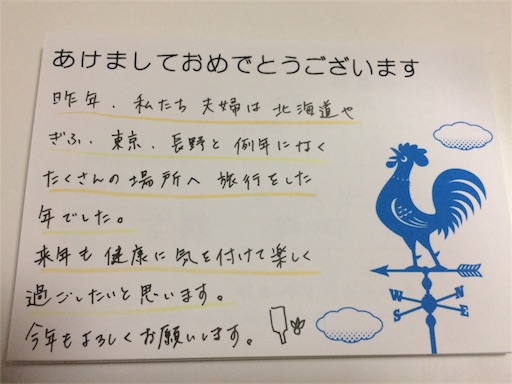 あけましておめでとうございます
昨年、私たち夫婦は北海道や
ぎふ、東京、長野と例年になく
たくさんの場所へ旅行をした
年でした。
来年も健康に気を付けて楽しく
過ごしたいと思います。
今年もよろしくお願いします。
W N
S E